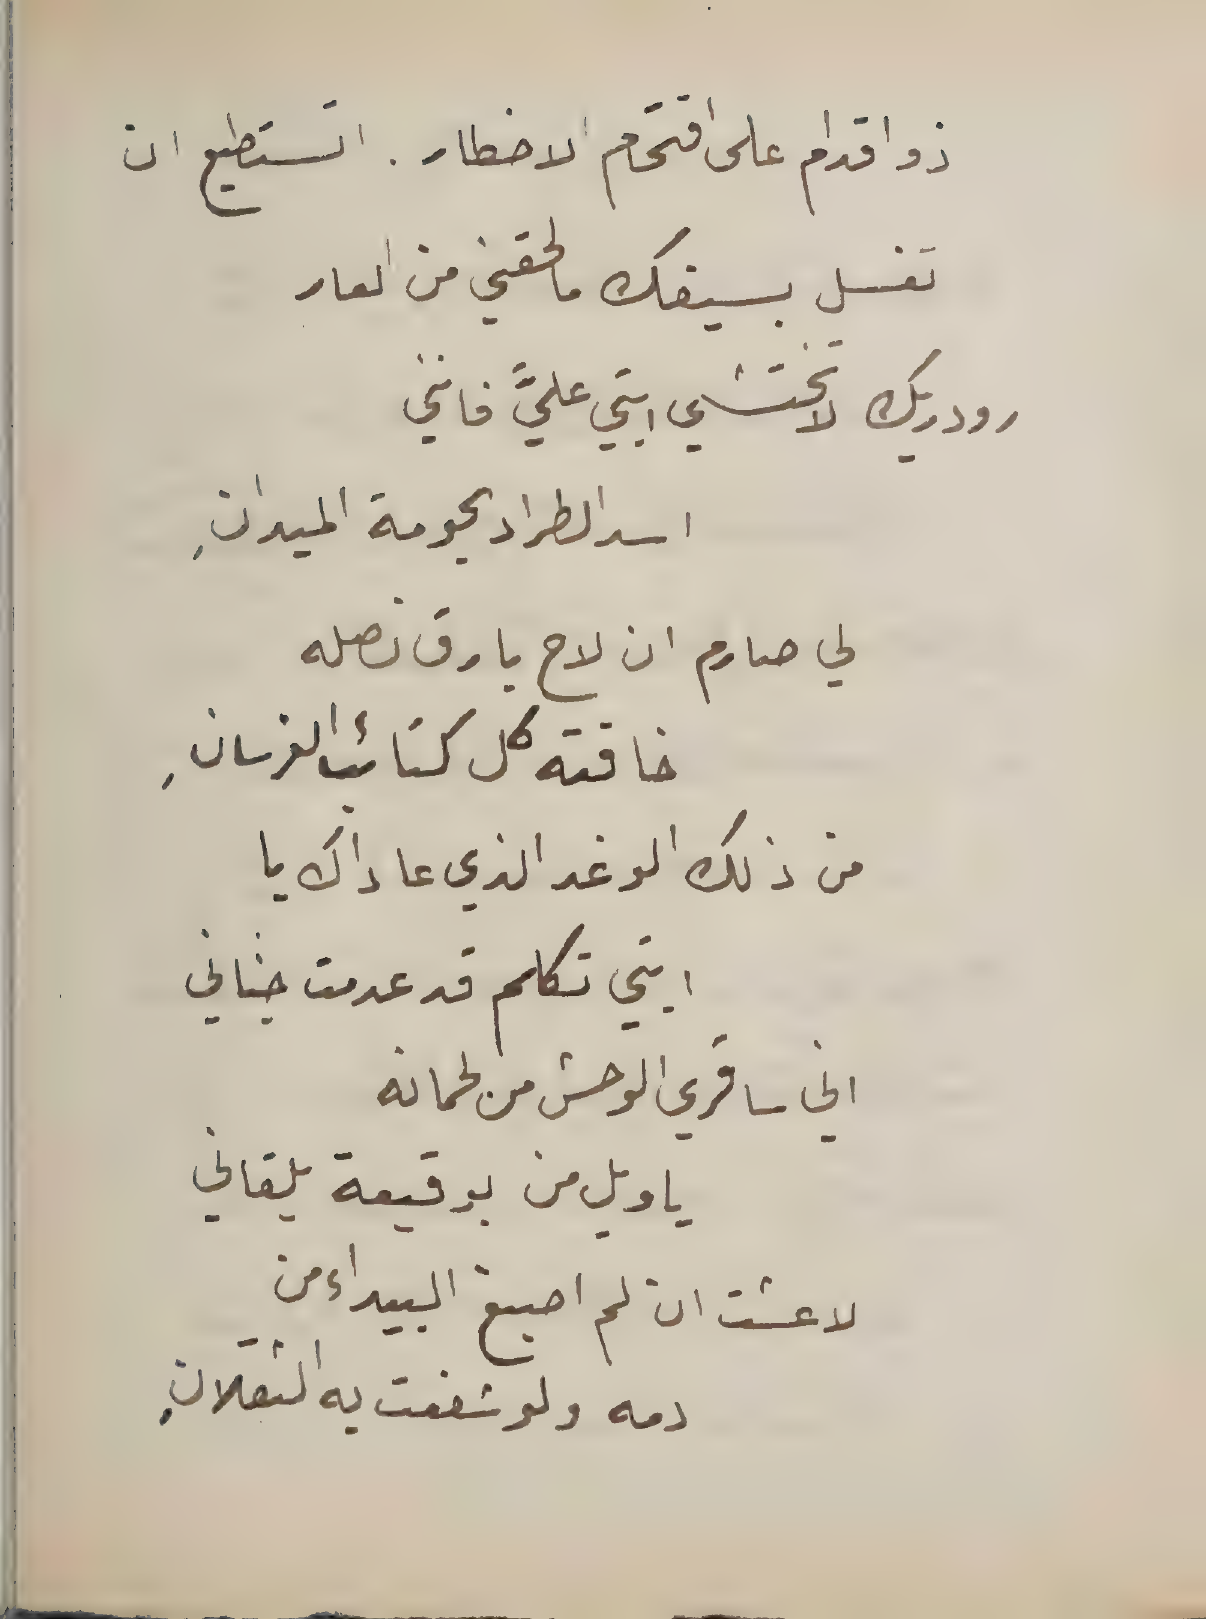 ذو اقدام على اقتحام الاخطار . اتستطيع ان
تغسل بسيفك مالحقني من العار
رودريك لاتختشي ابتي عليَّ فانني
اسد الطراد بحومة الميدانِ
لي صارم ان لاح بارق نصله
خافته كل كتائب الفرسانِ
من ذلك الوغد الذي عاداك يا
ابتي تكلم قد عدمت جناني
اني ساقري الوحش من لحمانه
ياويل من بوقيعة يلقاني
لاعشت ان لم اصبغ البيداء من
دمه ولو شفعت به الثقلانِ